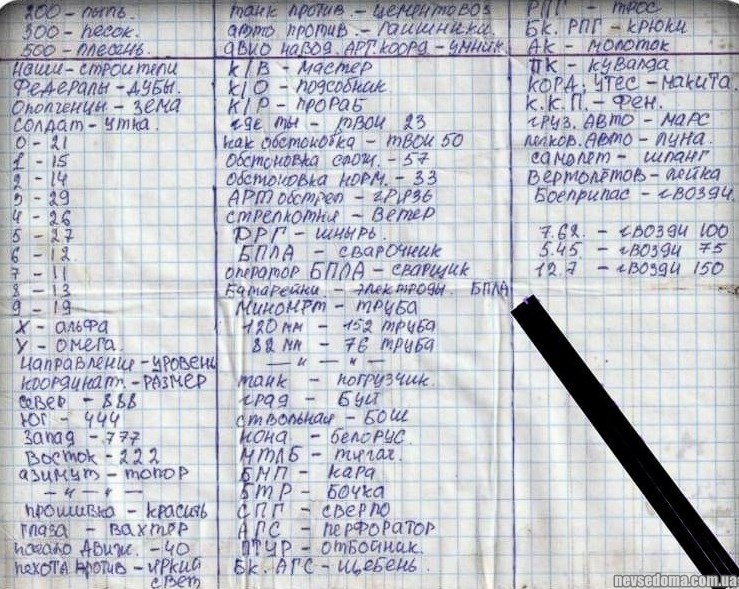 200 - пыль.
300 - песок.
500 - плесень.
наши - строители
Федералы - дубы.
Ополченцы - зема
солдат - утка.
0 - 21
1 - 15
2 - 14
3 - 29
4 - 26
5 - 27
6 - 12
7 - 11
8 - 13
9 - 19
X - альфа
У - омега.
направление - уровень
координат. - размер
север - 888
Юг - 444
Запад - 777
Восток - 222
азимут - топор
— " — " —
прошивка - красить
глаза - вахтёр
начало движ. - 40
пехота против - яркий
свет
танк против. - цементовоз
авто против. - Гаишники.
авио навод. арт. коорд - умник.
К/В - мастер
К/О - подсобник
К/Р - прораб
где ты - твои 23
как обстоновка - твои 50
Обстоновка слож. - 57
Обстоновка норм. - 33
АРТ обстрел - грязь
стрелкотня - Ветер
ДРГ - шнырь.
БПЛА - сварочник
оператор БПЛА - сварщик
Батарейки - электроды. БПЛА
Миномёт - труба
120 мм - 152 труба
82 мм - 76 труба
— " — " —
танк - погрузчик.
град - Буй
ствольная - БОШ
нона - белорус.
МТЛБ - тягач.
БМП - кара
БТР - Бочка
СПГ - сверло
АГС - перфоратор
ПТУР - отбойник.
Бк. АГС - щебень.
РПГ - трос
Бк. РПГ - крюки
АК - молоток
ПК - кувалда
КОРД; УТЕС - макита.
К.К.П. - Фен.
груз. Авто - марс
легков. Авто - луна.
самолет - шланг
Вертолётов - лейка
Боеприпас - гвозди.
7.62. - гвозди 100
5.45. - гвозди 75
12.7 - гвозди 150
nevsedoma.com.ua